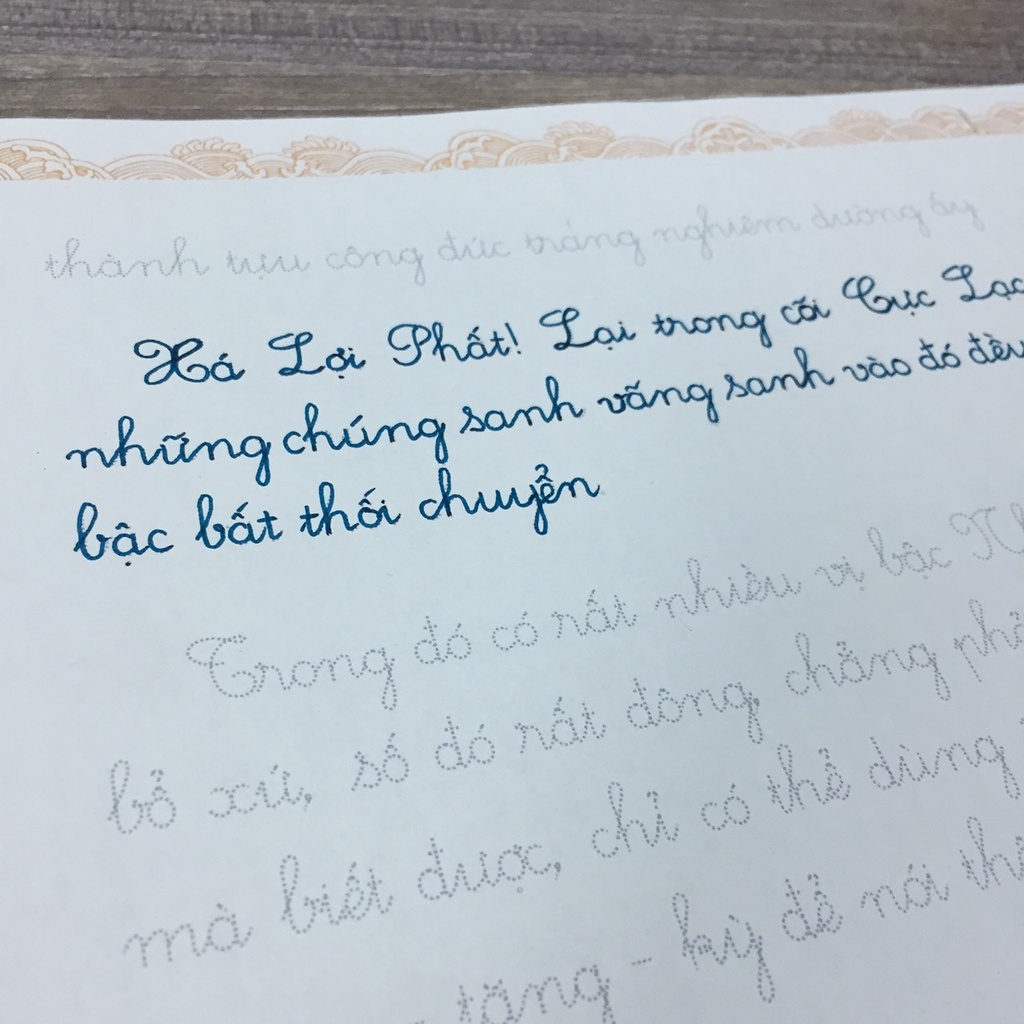 thành tựu công đức trang nghiêm dường ấy
Xá Lợi Phất! Lại trong cõi Cực Lạc
những chúng sanh vãng sanh vào đó đều
bậc bất thối chuyển
Trong đó có rất nhiều vị bậc
bổ xứ, số đó rất đông, chẳng
mà biết được, chỉ có thể dùng
tăng - kỳ để nói